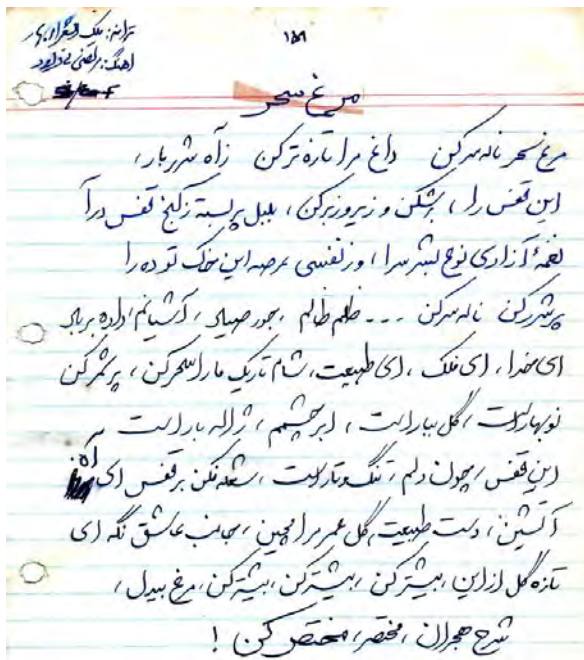 ترانه: ملک الشعرای بهار
اهنگ: مرتضی نی داود
۱۵۹
مرغ سحر
مرغ سحر ناله سر کن داغ مرا تازه تر کن زآه شرر بار،
این قفس را، برشکن و زیر و زبر کن، بلبل پر بسته ز کنج قفس درآ
نغمهٔ آزادی نوع بشر سرا، وز نفسی عرصه این خاک توده را
پر شرر کن ناله سر کن --- ظلم ظالم، جور صیاد، آشیانم داده بر باد
ای خدا، ای فلک، ای طبیعت، شام تاریک ما را سحر کن، پر شرر کن
نوبهار است، گل ببار است، ابر چشمم، ژاله بار است
این قفس، چون دلم، تنگ و تار است، شعله فکن بر قفس ای آه
آتشین، دست طبیعت، گل عمر مرا مچین، جانب عاشق نگه ای
تازه گل از این، بیشتر کن، بیشتر کن، بیشتر کن، مرغ بیدل،
شرح هجران، مختصر، مختصر کن!